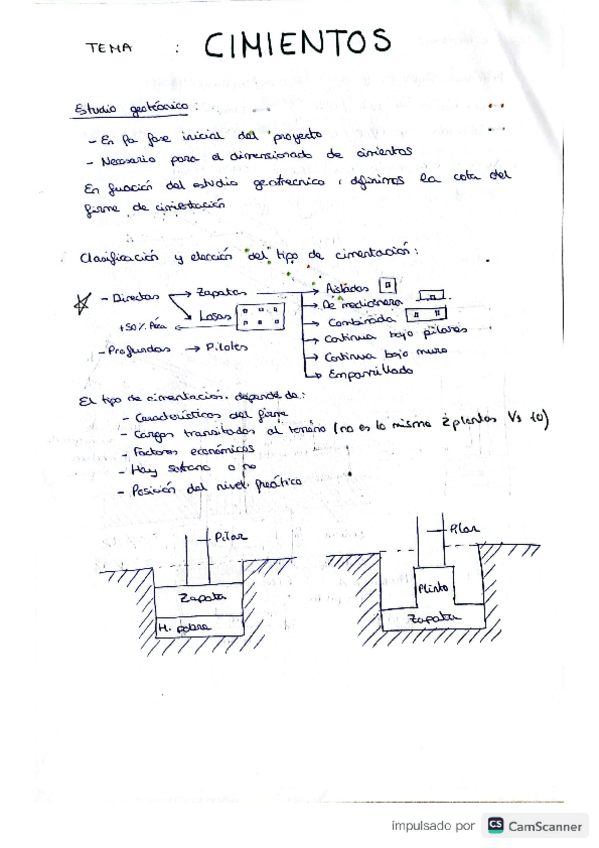 TEMA : CIMIENTOS
Estudio geotécnico :
- En la fase inicial del proyecto
- Necesario para el dimensionado de cimientos
En función del estudio geotecnico, definimos la cota del
firme de cimentación
Clasificación y elección del tipo de cimentación :
- Directas → Zapatas → Aisladas
→ De medianera
→ Losas → Combinada
+50% Área → Continua bajo pilares
- Profundas → Pilotes → Continua bajo muro
→ Emparrillado
El tipo de cimentación. depende de :
- Características del firme
- Cargas transmitidas al terreno (no es lo mismo 2 plantas Vs 10)
- Factores económicos
- Hay sotano o no
- Posición del nivel freático
Pilar
Pilar
Zapata
Plinto
H. pobre
Zapata
impulsado por CS CamScanner